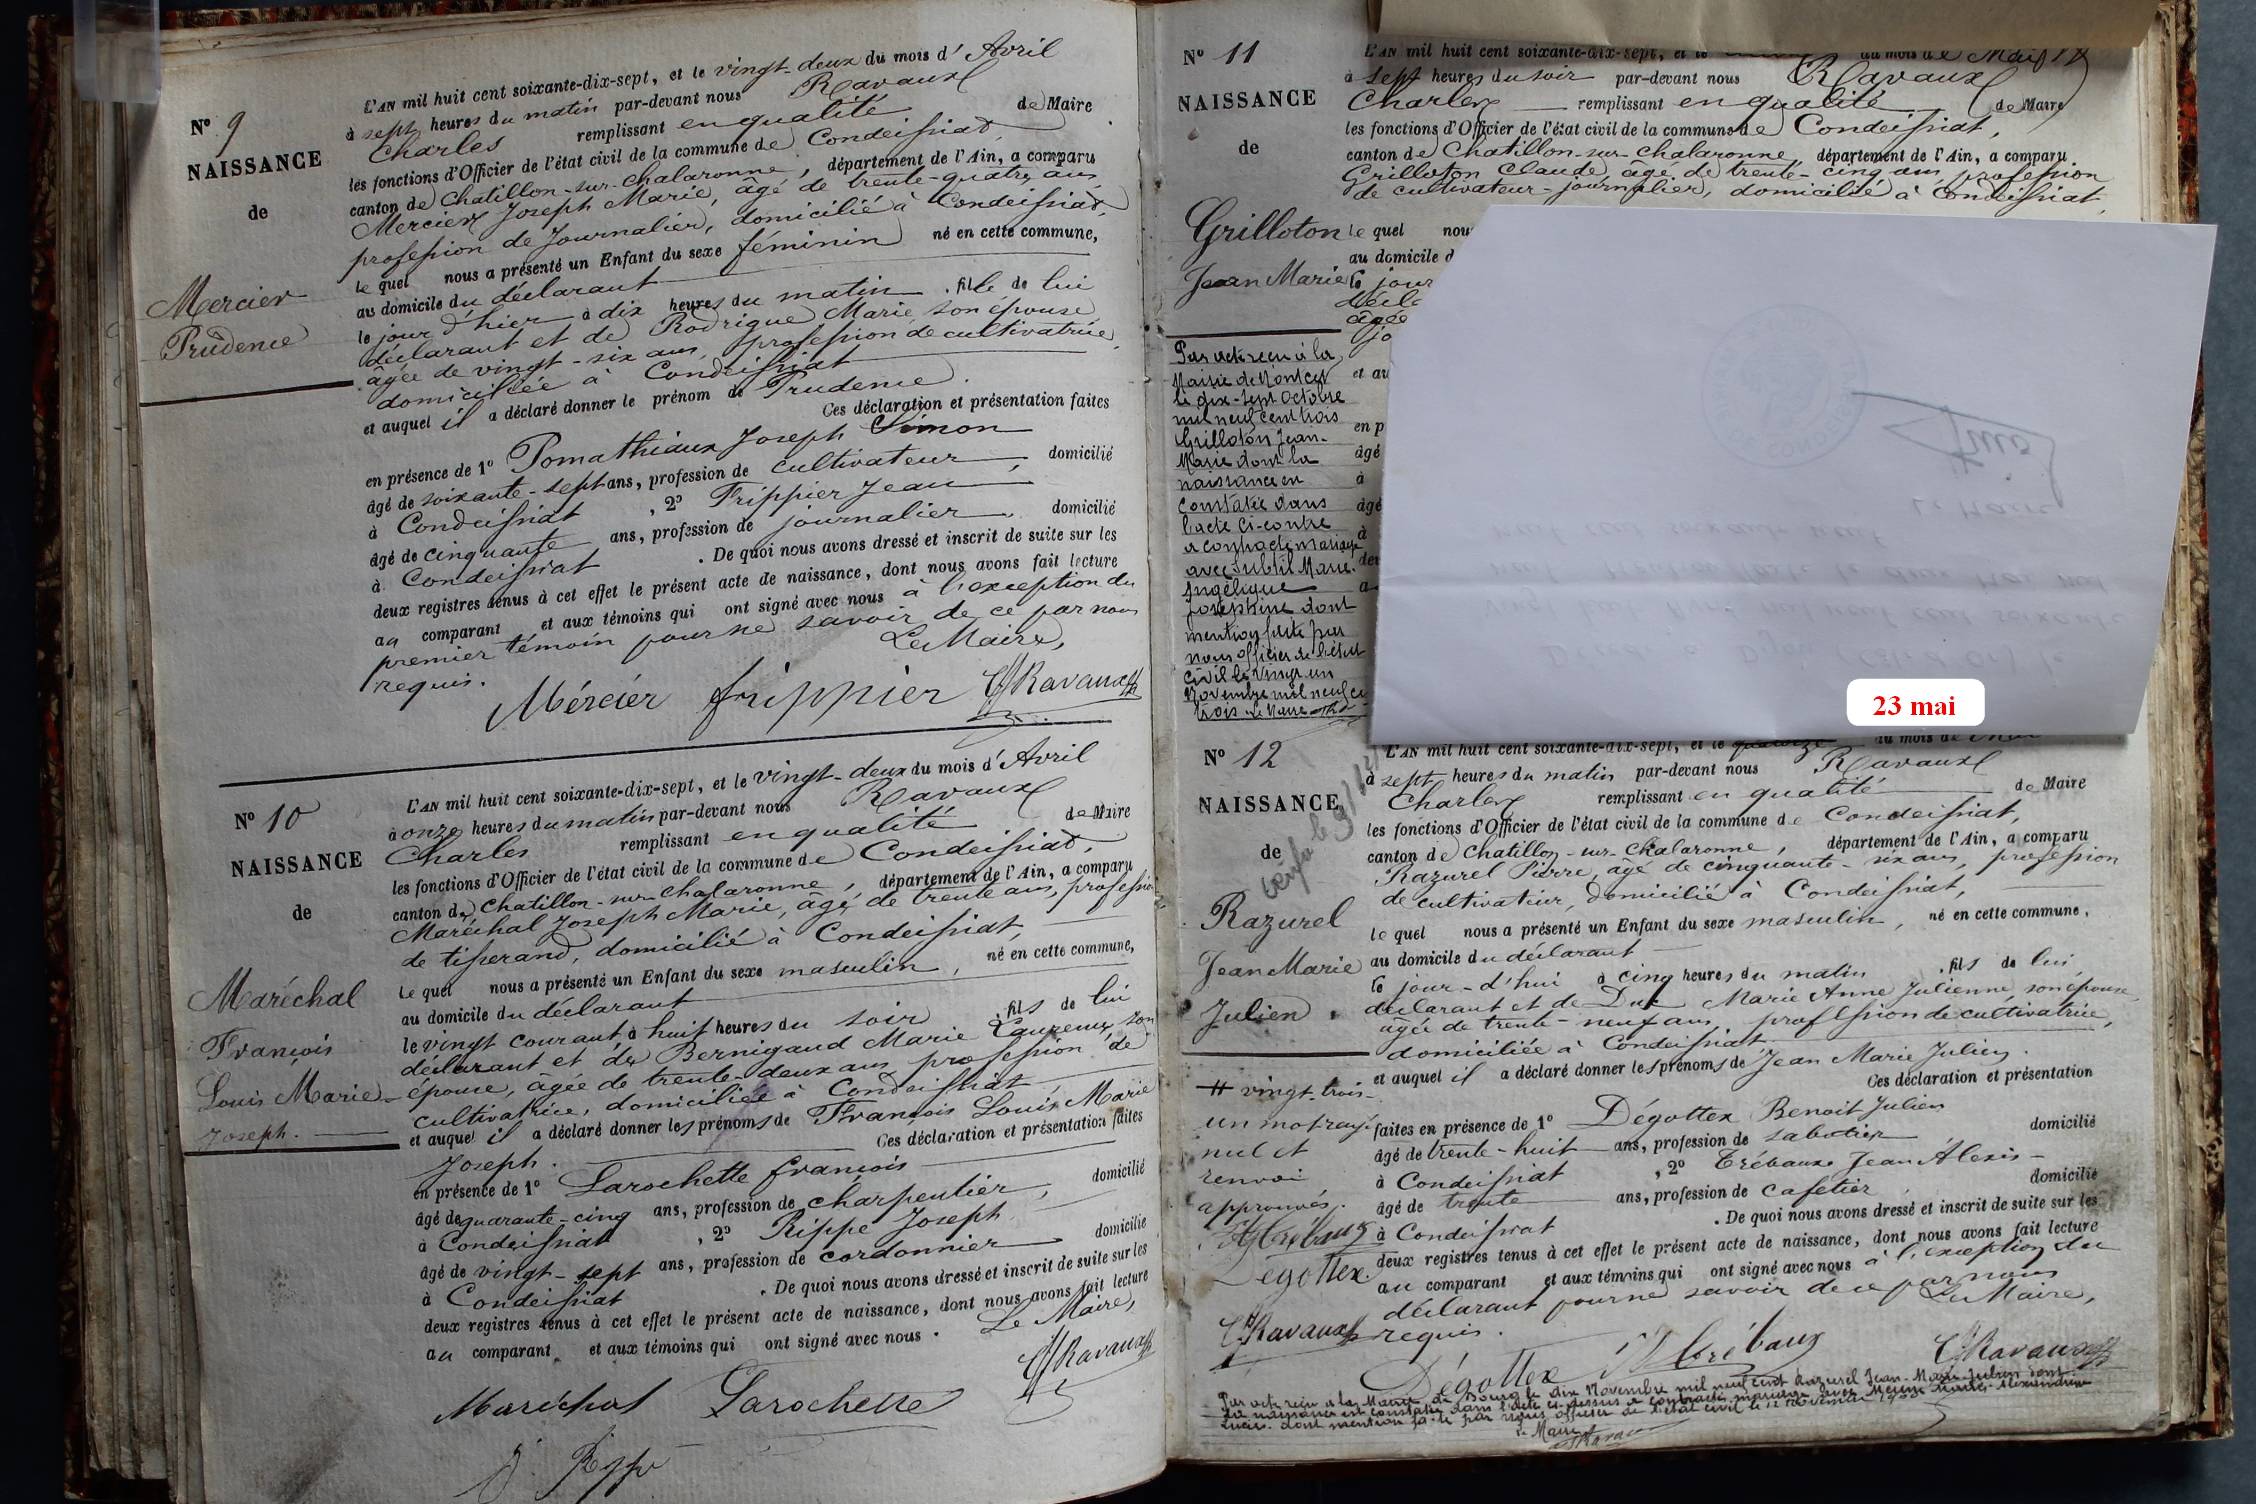 N° 9
NAISSANCE
de
Mercier
Prudence
L'AN mil huit cent soixante-dix-sept, et le vingt-deux du mois d'Avril
à sept heures du matin par-devant nous Ravaux
Charles remplissant en qualité de Maire
les fonctions d'Officier de l'état civil de la commune de Condeissiat,
canton de Chatillon-sur-Chalaronne, département de l'Ain, a comparu
Mercier Joseph Marie, âgé de trente-quatre ans,
profession de Journalier, domicilié à Condeissiat,
le quel nous a présenté un Enfant du sexe féminin né en cette commune,
au domicile du déclarant
le jour d'hier à dix heures du matin, fille de lui
déclarant et de Rodrigue Marie son épouse
âgée de vingt-six ans, profession de cultivatrice,
domiciliée à Condeissiat
et auquel il a déclaré donner le prénom de Prudence.
Ces déclaration et présentation faites
en présence de 1° Pomathiaux Joseph Simon
âgé de soixante-sept ans, profession de cultivateur, domicilié
à Condeissiat, 2° Frippier Jean
âgé de cinquante ans, profession de journalier, domicilié
à Condeissiat. De quoi nous avons dressé et inscrit de suite sur les
deux registres tenus à cet effet le présent acte de naissance, dont nous avons fait lecture
au comparant et aux témoins qui ont signé avec nous à l'exception du
premier témoin pour ne savoir de ce par nous
requis. Le Maire,
Mércier frippier Ravaux
N° 10
NAISSANCE
de
Maréchal
François
Louis Marie
Joseph.
L'AN mil huit cent soixante-dix-sept, et le vingt-deux du mois d'Avril
à onze heures du matin par-devant nous Ravaux
Charles remplissant en qualité de Maire
les fonctions d'Officier de l'état civil de la commune de Condeissiat,
canton de Chatillon-sur-Chalaronne, département de l'Ain, a comparu
Maréchal Joseph Marie, âgé de trente ans, profession
de tisserand, domicilié à Condeissiat,
le quel nous a présenté un Enfant du sexe masculin, né en cette commune,
au domicile du déclarant
le vingt courant, à huit heures du soir, fils de lui
déclarant et de Bernigaud Marie Laurence, son
épouse, âgée de trente-deux ans profession de
cultivatrice, domiciliée à Condeissiat
et auquel il a déclaré donner les prénoms de François Louis Marie
Joseph. Ces déclaration et présentation faites
en présence de 1° Larochette françois
âgé de quarante-cinq ans, profession de charpentier, domicilié
à Condeissiat, 2° Rippe Joseph
âgé de vingt-sept ans, profession de cordonnier domicilié
à Condeissiat. De quoi nous avons dressé et inscrit de suite sur les
deux registres tenus à cet effet le présent acte de naissance, dont nous avons fait lecture
au comparant et aux témoins qui ont signé avec nous. Le Maire,
Maréchal Larochette Ravaux
N° 11
NAISSANCE
de
Grilloton
Jean Marie
L'AN mil huit cent soixante-dix-sept, et le du mois de Mai
à sept heures du soir par-devant nous Ravaux
Charles remplissant en qualité de Maire
les fonctions d'Officier de l'état civil de la commune de Condeissiat,
canton de Chatillon-sur-Chalaronne, département de l'Ain, a comparu
Grilloton Claude, âgé de trente-cinq ans, profession
de cultivateur-journalier, domicilié à Condeissiat,
le quel nou
au domicile d
le jour
décla
âgée
jo
et au
en p
âgé
à
âgé
à
Par acte reçu à la
Mairie de Montcet
le dix-sept Octobre
mil neuf cent trois
Grilloton Jean-
Marie dont la
naissance en
constatée dans
l'acte ci-contre
a contracté mariage
avec Subtil Marie
Angélique
Joséphine dont
mention faite par
nous officier de l'état
civil le vingt un
Novembre mil neuf ce
trois Le Maire
23 mai
N° 12
NAISSANCE
de
Razurel
Jean Marie
Julien
L'AN mil huit cent soixante-dix-sept, et le quatorze du mois de Mai
à sept heures du matin par-devant nous Ravaux
Charles remplissant en qualité de Maire
les fonctions d'Officier de l'état civil de la commune de Condeissiat,
canton de Chatillon-sur-Chalaronne, département de l'Ain, a comparu
Razurel Pierre, âgé de cinquante-six ans, profession
de cultivateur, domicilié à Condeissiat,
le quel nous a présenté un Enfant du sexe masculin, né en cette commune,
au domicile du déclarant
le jour-d'hui à cinq heures du matin, fils de lui
déclarant et de Duc Marie Anne Julienne, son épouse
âgée de trente-neuf ans, profession de cultivatrice,
domiciliée à Condeissiat
et auquel il a déclaré donner les prénoms de Jean Marie Julien.
Ces déclaration et présentation
faites en présence de 1° Dégottex Benoit Julien
âgé de trente-huit ans, profession de sabotier domicilié
à Condeissiat, 2° Trébaux Jean Alexis
âgé de trente ans, profession de cafetier, domicilié
à Condeissiat. De quoi nous avons dressé et inscrit de suite sur les
deux registres tenus à cet effet le présent acte de naissance, dont nous avons fait lecture
au comparant et aux témoins qui ont signé avec nous à l'exception du
déclarant pour ne savoir de ce par nous
requis. Le Maire,
Dégottex Trébaux Ravaux
# vingt-trois
un mot rayé
nul et
renvoi
approuvés.
Trébaux
Degottex
Ravaux
Par acte reçu à la Mairie de Bourg le dix Novembre mil neuf cent Razurel Jean-Marie-Julien dont
la naissance est constatée dans l'acte ci-dessus a contracté mariage avec Marie
dont mention faite par nous officier de l'état civil le 12 novembre
Le Maire